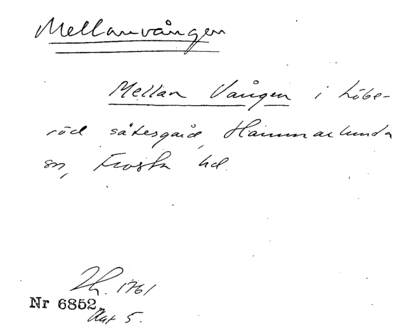 Mellanvången
Mellan Vången i Löbe-
röd sätesgård, Hammarlunda
sn, Frosta hd.
Lk. 1761
Nr 6852
Akt 5.